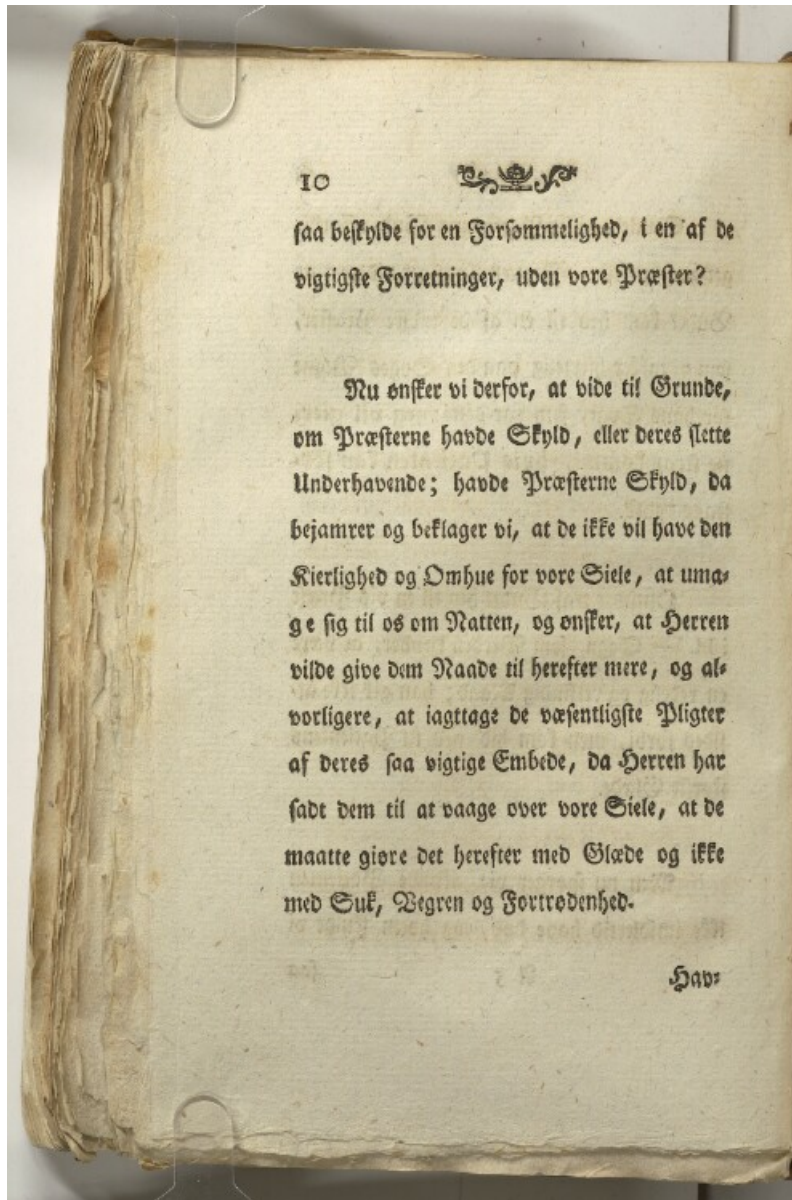 10
saa beskylde for en Forsømmelighed, i en af de
vigtigste Forretninger, uden vore Præster?
Nu ønsker vi derfor, at vide til Grunde,
om Præsterne havde Skyld, eller deres slette
Underhavende; havde Præsterne Skyld, da
bejamrer og beklager vi, at de ikke vil have den
Kierlighed og Omhue for vore Siele, at uma-
ge sig til os om Natten, og ønsker, at Herren
vilde give dem Naade til herefter mere, og al-
vorligere, at iagttage de væsentligste Pligter
af deres saa vigtige Embede, da Herren har
sadt dem til at vaage over vore Siele, at de
maatte giøre det herefter med Glæde og ikke
med Suk, Vegren og Fortrødenhed.
Hav-